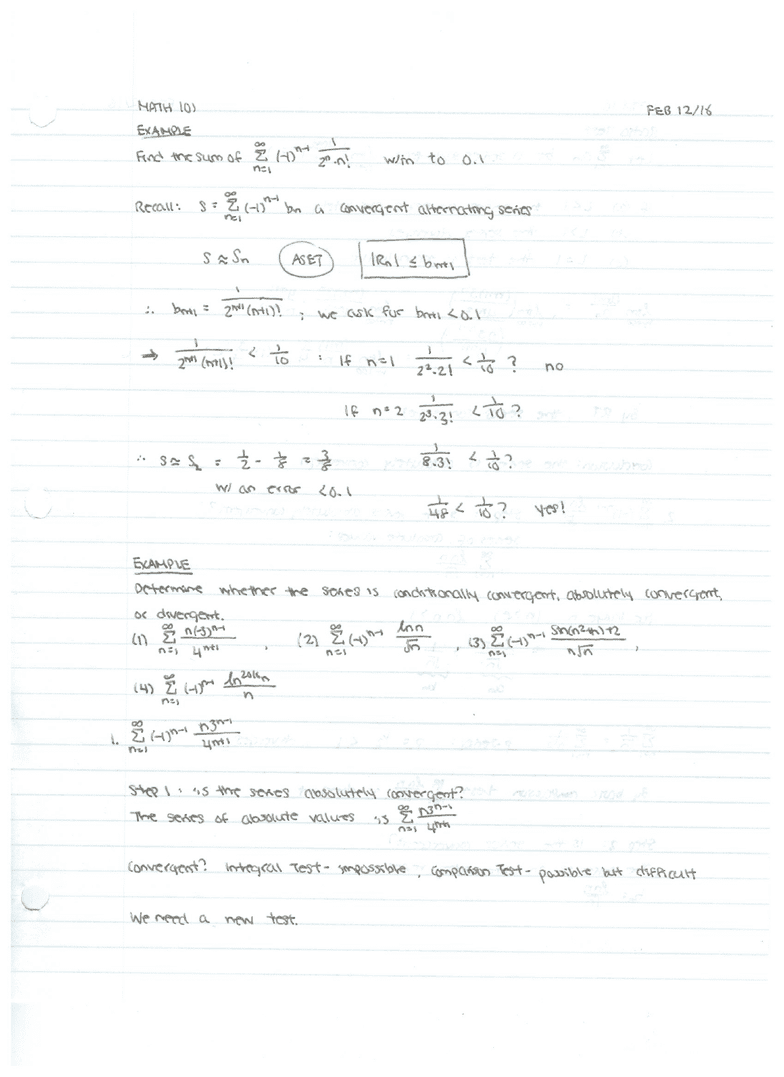 MATH 101 FEB 12/16
EXAMPLE
Find the sum of ∑_{n=1}^{∞} (-1)^{n-1} 1/(2^n·n!) w/in to 0.1
Recall: S = ∑_{n=1}^{∞} (-1)^{n-1} bn a convergent alternating series
S ≈ Sn ASET |Rn| ≤ b_{n+1}
∴ b_{n+1} = 1/(2^{n+1}(n+1)!) ; we ask for b_{n+1} < 0.1
⇒ 1/(2^{n+1}(n+1)!) < 1/10 : If n=1 1/(2^2·2!) < 1/10 ? no
If n=2 1/(2^3·3!) < 1/10 ?
∴ S ≈ S_2 = 1/2 - 1/8 = 3/8 1/(8·3!) < 1/10 ?
w/ an error < 0.1
1/48 < 1/10 ? yes!
EXAMPLE
Determine whether the series is conditionally convergent, absolutely convergent,
or divergent.
(1) ∑_{n=1}^{∞} n(-3)^{n-1}/4^{n+1} , (2) ∑_{n=1}^{∞} (-1)^{n-1} ln n/√n , (3) ∑_{n=1}^{∞} (-1)^{n-1} (sin(n^2+n)+2)/(n√n) ,
(4) ∑_{n=1}^{∞} (-1)^{n-1} ln^{2016}n/n
1. ∑_{n=1}^{∞} (-1)^{n-1} n3^{n-1}/4^{n+1}
Step 1: is the series absolutely convergent?
The series of absolute values is ∑_{n=1}^{∞} n3^{n-1}/4^{n+1}
Convergent? Integral Test - impossible, comparison Test - possible but difficult
We need a new test.